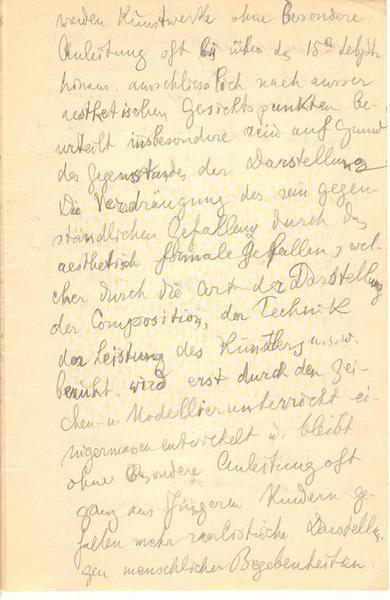 werden Kunstwerke ohne besondere
Anleitung oft bis über das 15te Lebjahr
hinaus ausschliesslich nach ausser
aesthetischen Gesichtspunkten be-
urteilt insbesondere rein auf Grund
des Gegenstandes der Darstellung
Die Verdrängung des rein gegen-
ständlichen Gefallens durch das
aesthetisch formale Gefallen, wel-
cher durch die Art der Darstellung
der Composition, der Technik
der Leistung des Künstlers u.s.w.
beruht wird erst durch den Zei-
chen- u. Modellierunterricht ei-
nigermassen entwickelt u. bleibt
ohne besondere Anleitung oft
ganz aus Jüngeren Kindern ge-
fallen mehr realistische Darstellun-
gen menschlicher Begebenheiten.